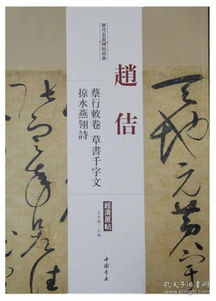 歷代名家碑帖經典
趙佶
蔡行敕卷 草書千字文
掠水燕翎詩
超清原帖
中國書店
天地元黄宇
孔夫子旧书网